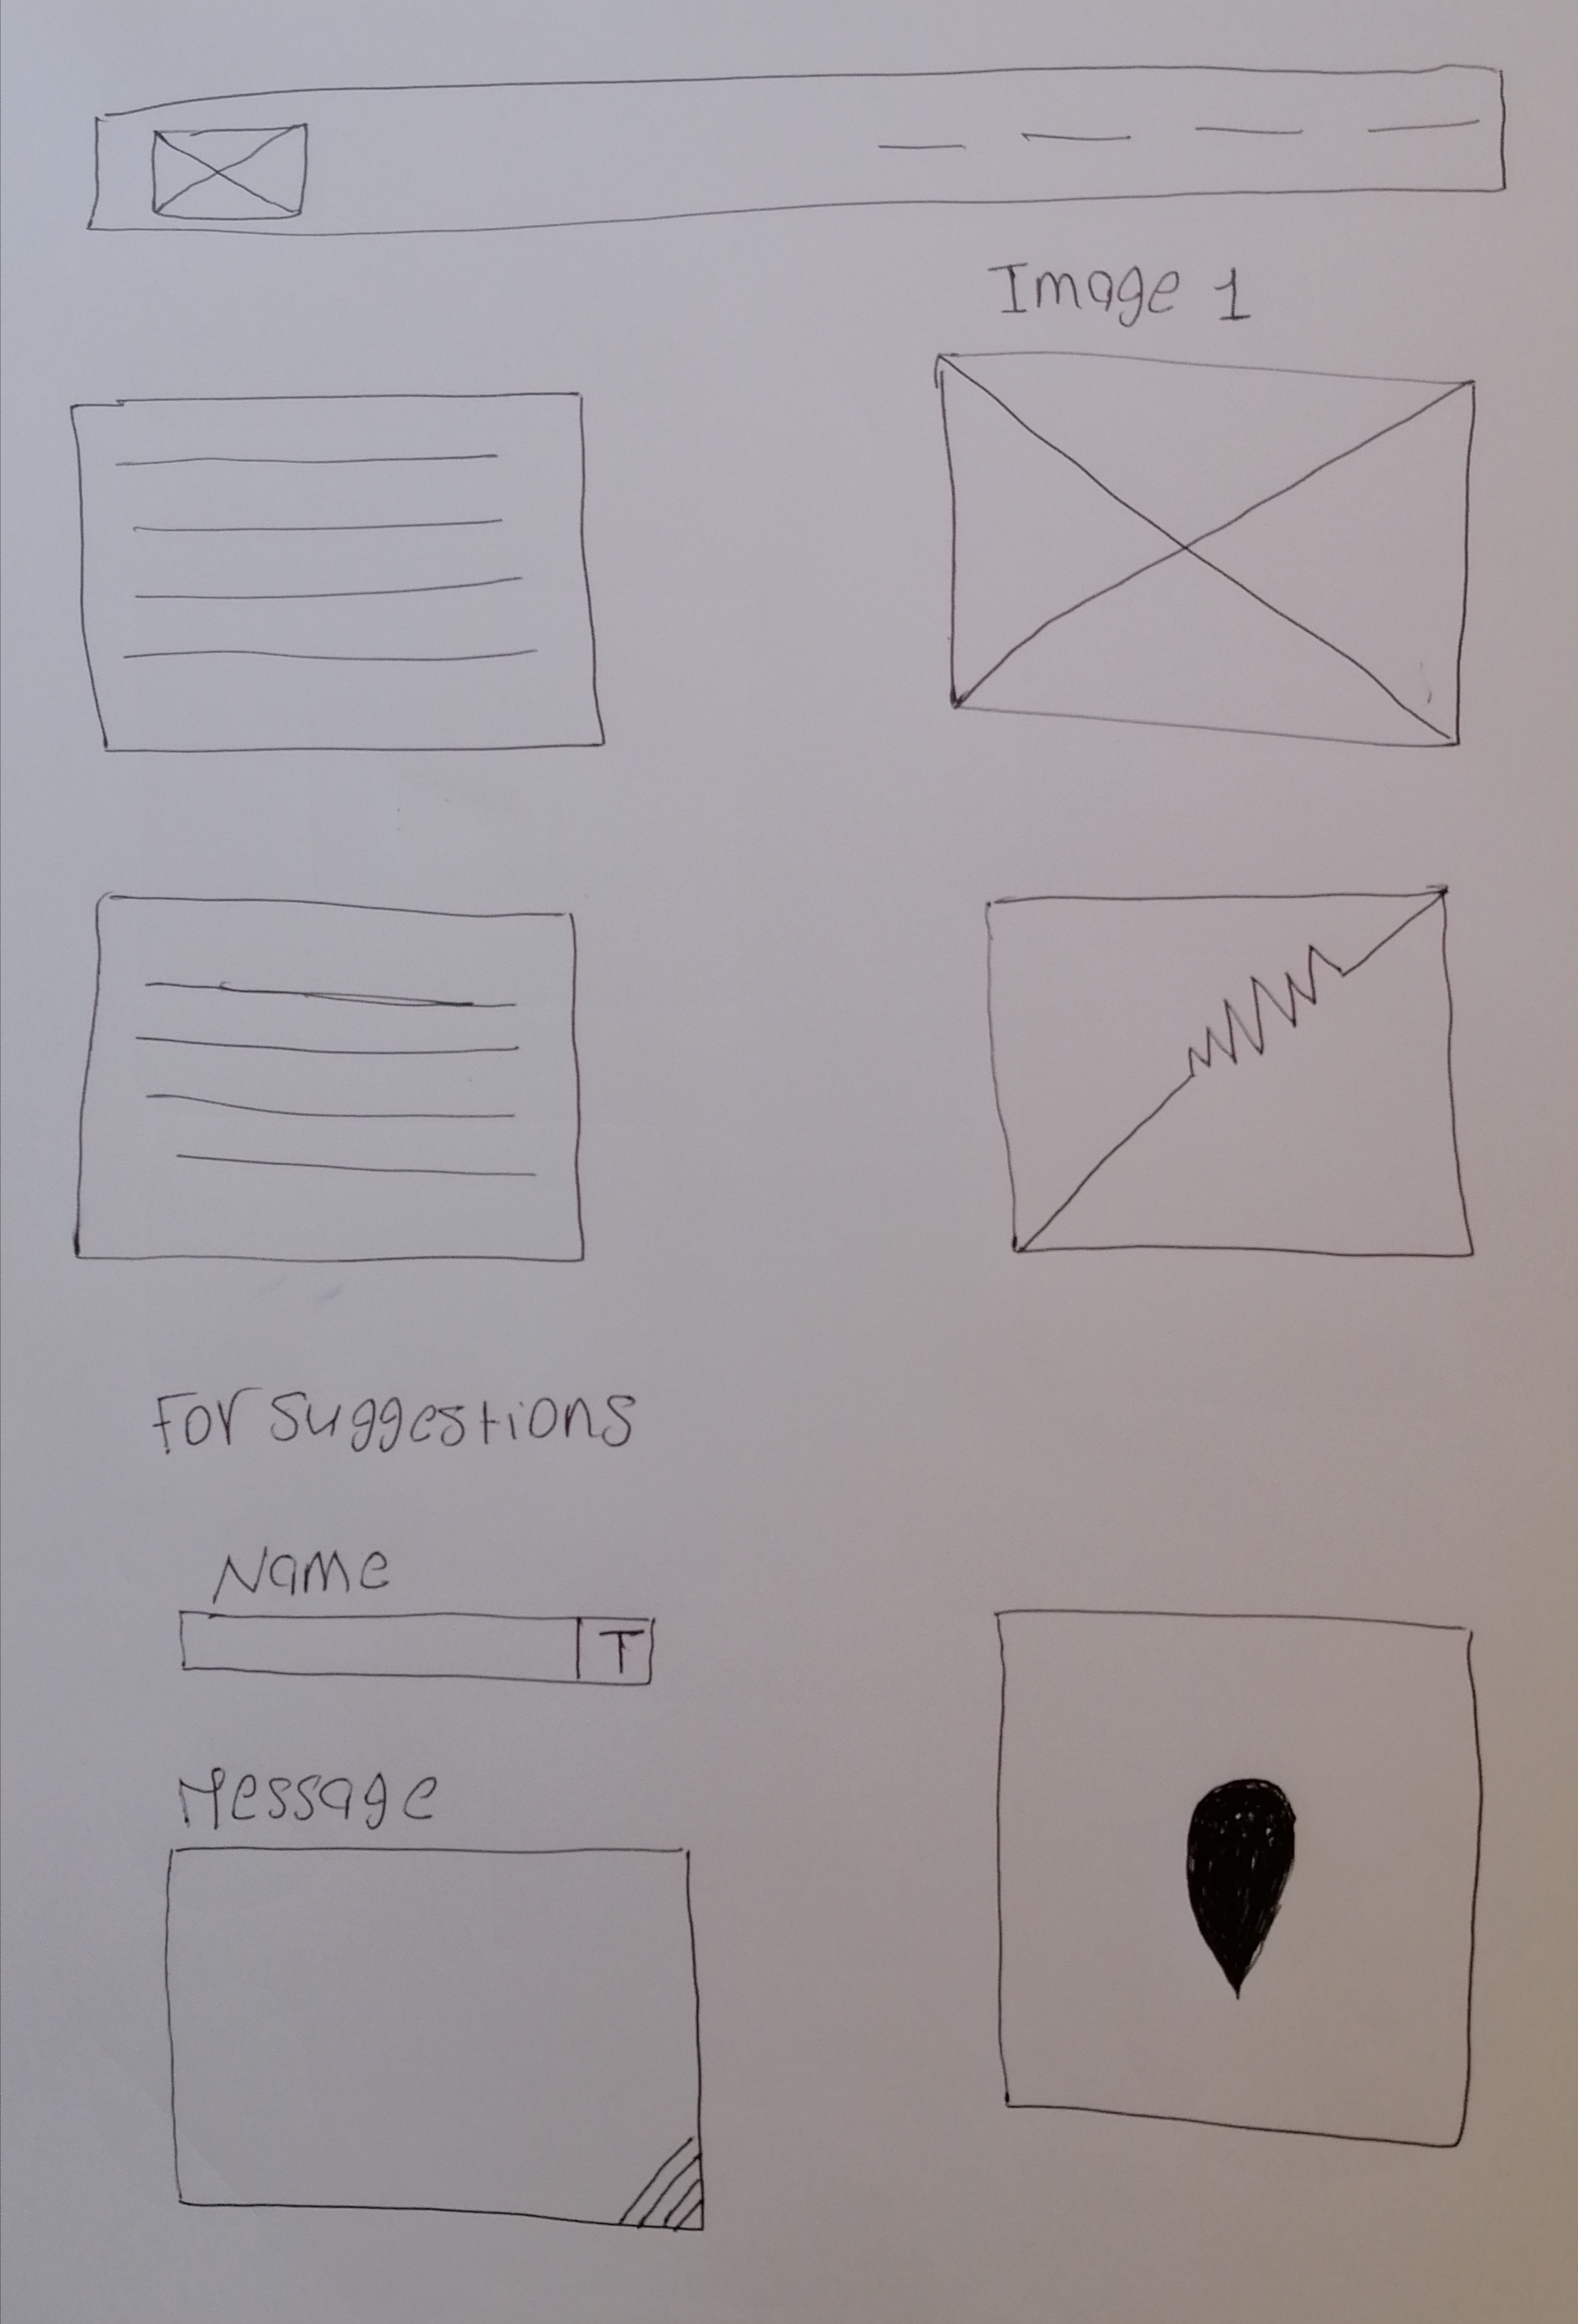 Image 1
For suggestions
Name
T
Message